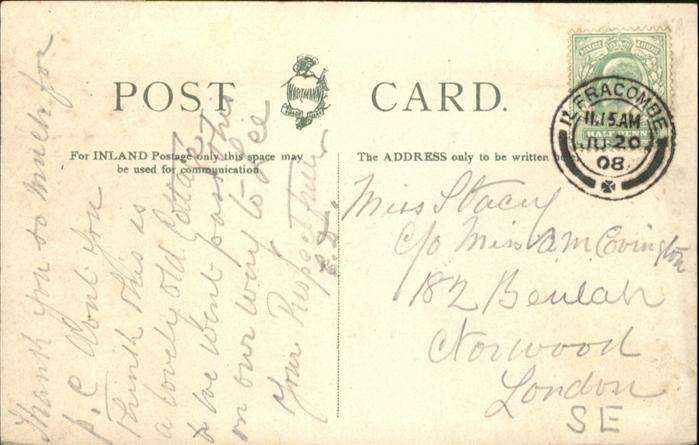 POST CARD.
HARTMANN
For INLAND Postage only this space may
be used for communication.
The ADDRESS only to be written
ILFRACOMBE
11.15 AM
JU 20
08
HALFPENNY
Thank you so much for
p.c Dont you
think this is
a lovely old Cottage
& we went past
on our way to
Your Respectfully
Miss Stacey
c/o Miss A M Covington
182 Beulah
Norwood
London
SE